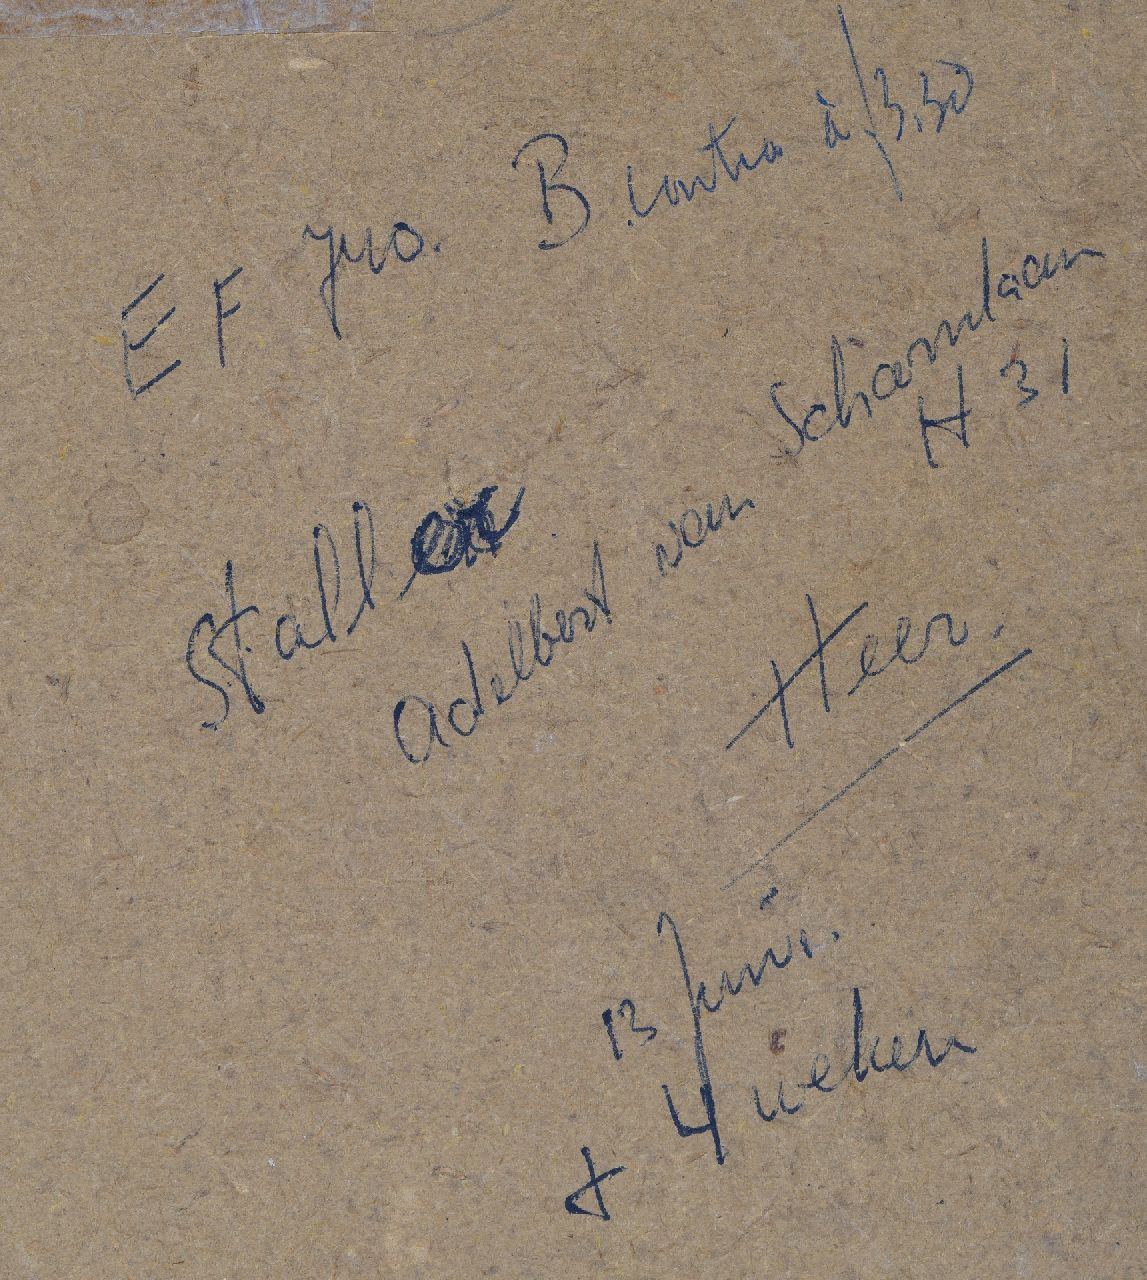 E F B contra à ƒ 3,50
Staller
adelbert van Scharnlaan
H 31
Heer.
13 Juni.
± 4 weken